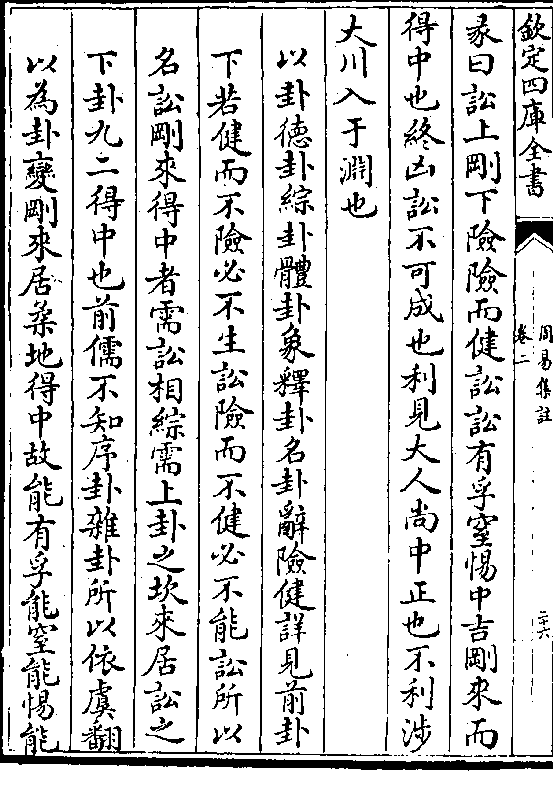 欽定四庫全書
周易集註
卷二
二六
彖曰訟上剛下險險而健訟訟有孚窒惕中吉剛來而
得中也終凶訟不可成也利見大人尚中正也不利涉
大川入于淵也
以卦德卦綜卦體卦象釋卦名卦辭險健詳見前卦
下若健而不險必不生訟險而不健必不能訟所以
名訟剛來得中者需訟相綜需上卦之坎來居訟之
下卦九二得中也前儒不知序卦雜卦所以依虞翻
以為卦變剛來居柔地得中故能有孚能窒能惕能